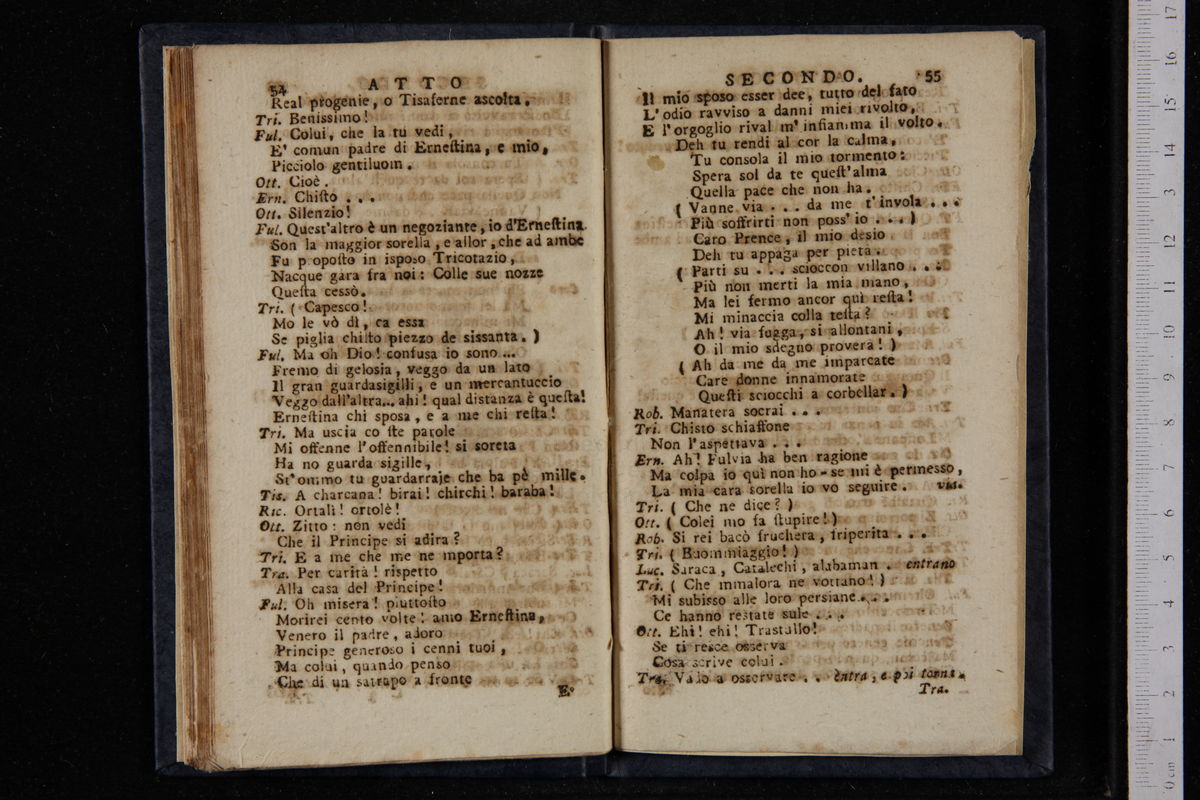 54 ATTO
Real progenie, o Tisaferne ascolta.
Tri. Benissimo!
Ful. Colui, che la tu vedi,
E' comun padre di Erneſtina, e mio,
Picciolo gentiluom.
Ott. Cioè.
Ern. Chiſto . . .
Ott. Silenzio!
Ful. Quest'altro è un negoziante, io d'Erneſtina
Son la maggior sorella, e allor, che ad ambe
Fu p oposto in isposo Tricotazio,
Nacque gara fra noi: Colle sue nozze
Queſta cessò.
Tri. ( Capesco!
Mo le vò dì, ca essa
Se piglia chiſto piezzo de sissanta. )
Ful. Ma oh Dio! confusa io sono...
Fremo di gelosia, veggo da un lato
Il gran guardasigilli, e un mercantuccio
Veggo dall'altra... ahi! qual distanza è queſta!
Erneſtina chi sposa, e a me chi reſta!
Tri. Ma uscia co ſte parole
Mi offenne l'offennibile! si soreta
Ha no guarda sigille,
St'ommo tu guardarraje che ba pè mille.
Tis. A charcana! birai! chirchi! baraba!
Ric. Ortalì! ortolè!
Ott. Zitto: non vedi
Che il Principe si adira?
Tri. E a me che me ne mporta?
Tra. Per carità! rispetto
Alla casa del Principe!
Ful. Oh misera! piuttoſto
Morirei cento volte! amo Erneſtina,
Venero il padre, adoro
Principe generoso i cenni tuoi,
Ma colui, quando penso
Che di un satrapo a fronte
E'
SECONDO. 55
Il mio sposo esser dee, tutto del fato
L'odio ravviso a danni miei rivolto,
E l'orgoglio rival m'infiamma il volto.
Deh tu rendi al cor la calma,
Tu consola il mio tormento:
Spera sol da te queſt'alma
Quella pace che non ha.
( Vanne via . . . da me t'invola . . .
Più soffrirti non poss'io . . . )
Caro Prence, il mio desio
Deh tu appaga per pietà.
( Parti su . . . scioccon villano . . .
Più non merti la mia mano,
Ma lei fermo ancor quì reſta!
Mi minaccia colla teſta?
Ah! via fugga, si allontani,
O il mio sdegno proverà! )
( Ah da me da me imparcate
Care donne innamorate
Queſti sciocchi a corbellar. )
Rob. Manatera socrai . . .
Tri. Chisto schiaffone
Non l'aspettava . . .
Ern. Ah! Fulvia ha ben ragione
Ma colpa io quì non ho - se mi è permesso,
La mia cara sorella io vo seguire. via.
Tri. ( Che ne dice? )
Ott. ( Colei mo fa ſtupire! )
Rob. Si rei bacò fruchera, friperita . . .
Tri. ( Buommiaggio! )
Luc. Saraca, Catalechi, alabaman . entrano
Tri. ( Che mmalora ne vottano! )
Mi subisso alle loro persiane . . .
Ce hanno restate sule . . .
Ott. Ehi! ehi! Trastullo!
Se ti resce osserva
Cosa scrive colui.
Tra. Vado a osservare . . entra, e poi torna.
Tra.